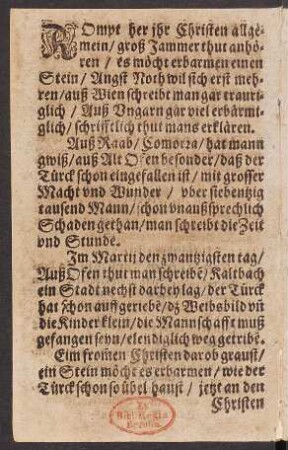 KOmpt her jhr Christen allge-
mein / groß Jammer thut anhö-
ren / es möcht erbarmen einen
Stein / Angst Noth wil sich erst meh-
ren / auß Wien schreibt man gar trauri-
glich / Auß Vngarn gar viel erbärm-
glich / schrifftlich thut mans erklären.
Auß Raab / Comorza / hat mann
gwiß / auß Alt Ofen besonder / daß der
Türck schon eingefallen ist / mit grosser
Macht vnd Wunder / vber siebentzig
tausend Mann / schon vnaußsprechlich
Schaden gethan / man schreibt die Zeit
vnd Stunde.
Im Martij den zwantzigsten tag /
Auß Ofen thut man schreibẽ / Kaltbach
ein Stadt nechst darbey lag / der Türck
hat schon auffgeriebẽ / dz Weibsbild vñ
die Kinder klein / die Mannschafft muß
gefangen seyn / elendiglich weggetribẽ.
Eim from̃en Christen darob graust /
ein Stein möcht es erbarmen / wie der
Türck schon so übel haust / jetzt an den
Christen
Ex
Bibl. Regia
Berolin.